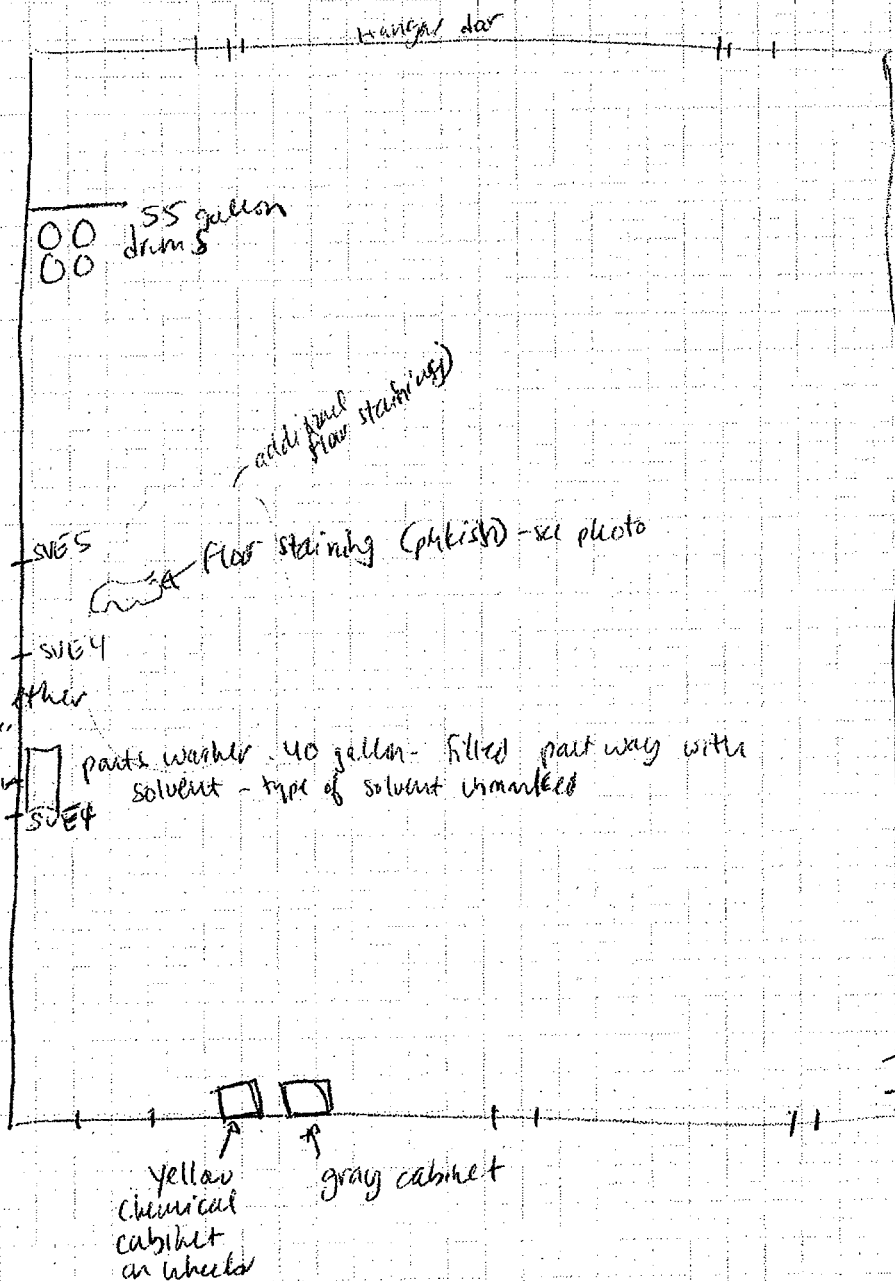 Hangar door
55 gallon
drums
additional
floor staining)
SVE5
floor staining (pinkish) - see photo
SVE4
other
parts washer. 40 gallon - filled part way with
solvent - type of solvent unmarked
SVE4
yellow
chemical
cabinet
on wheels
gray cabinet